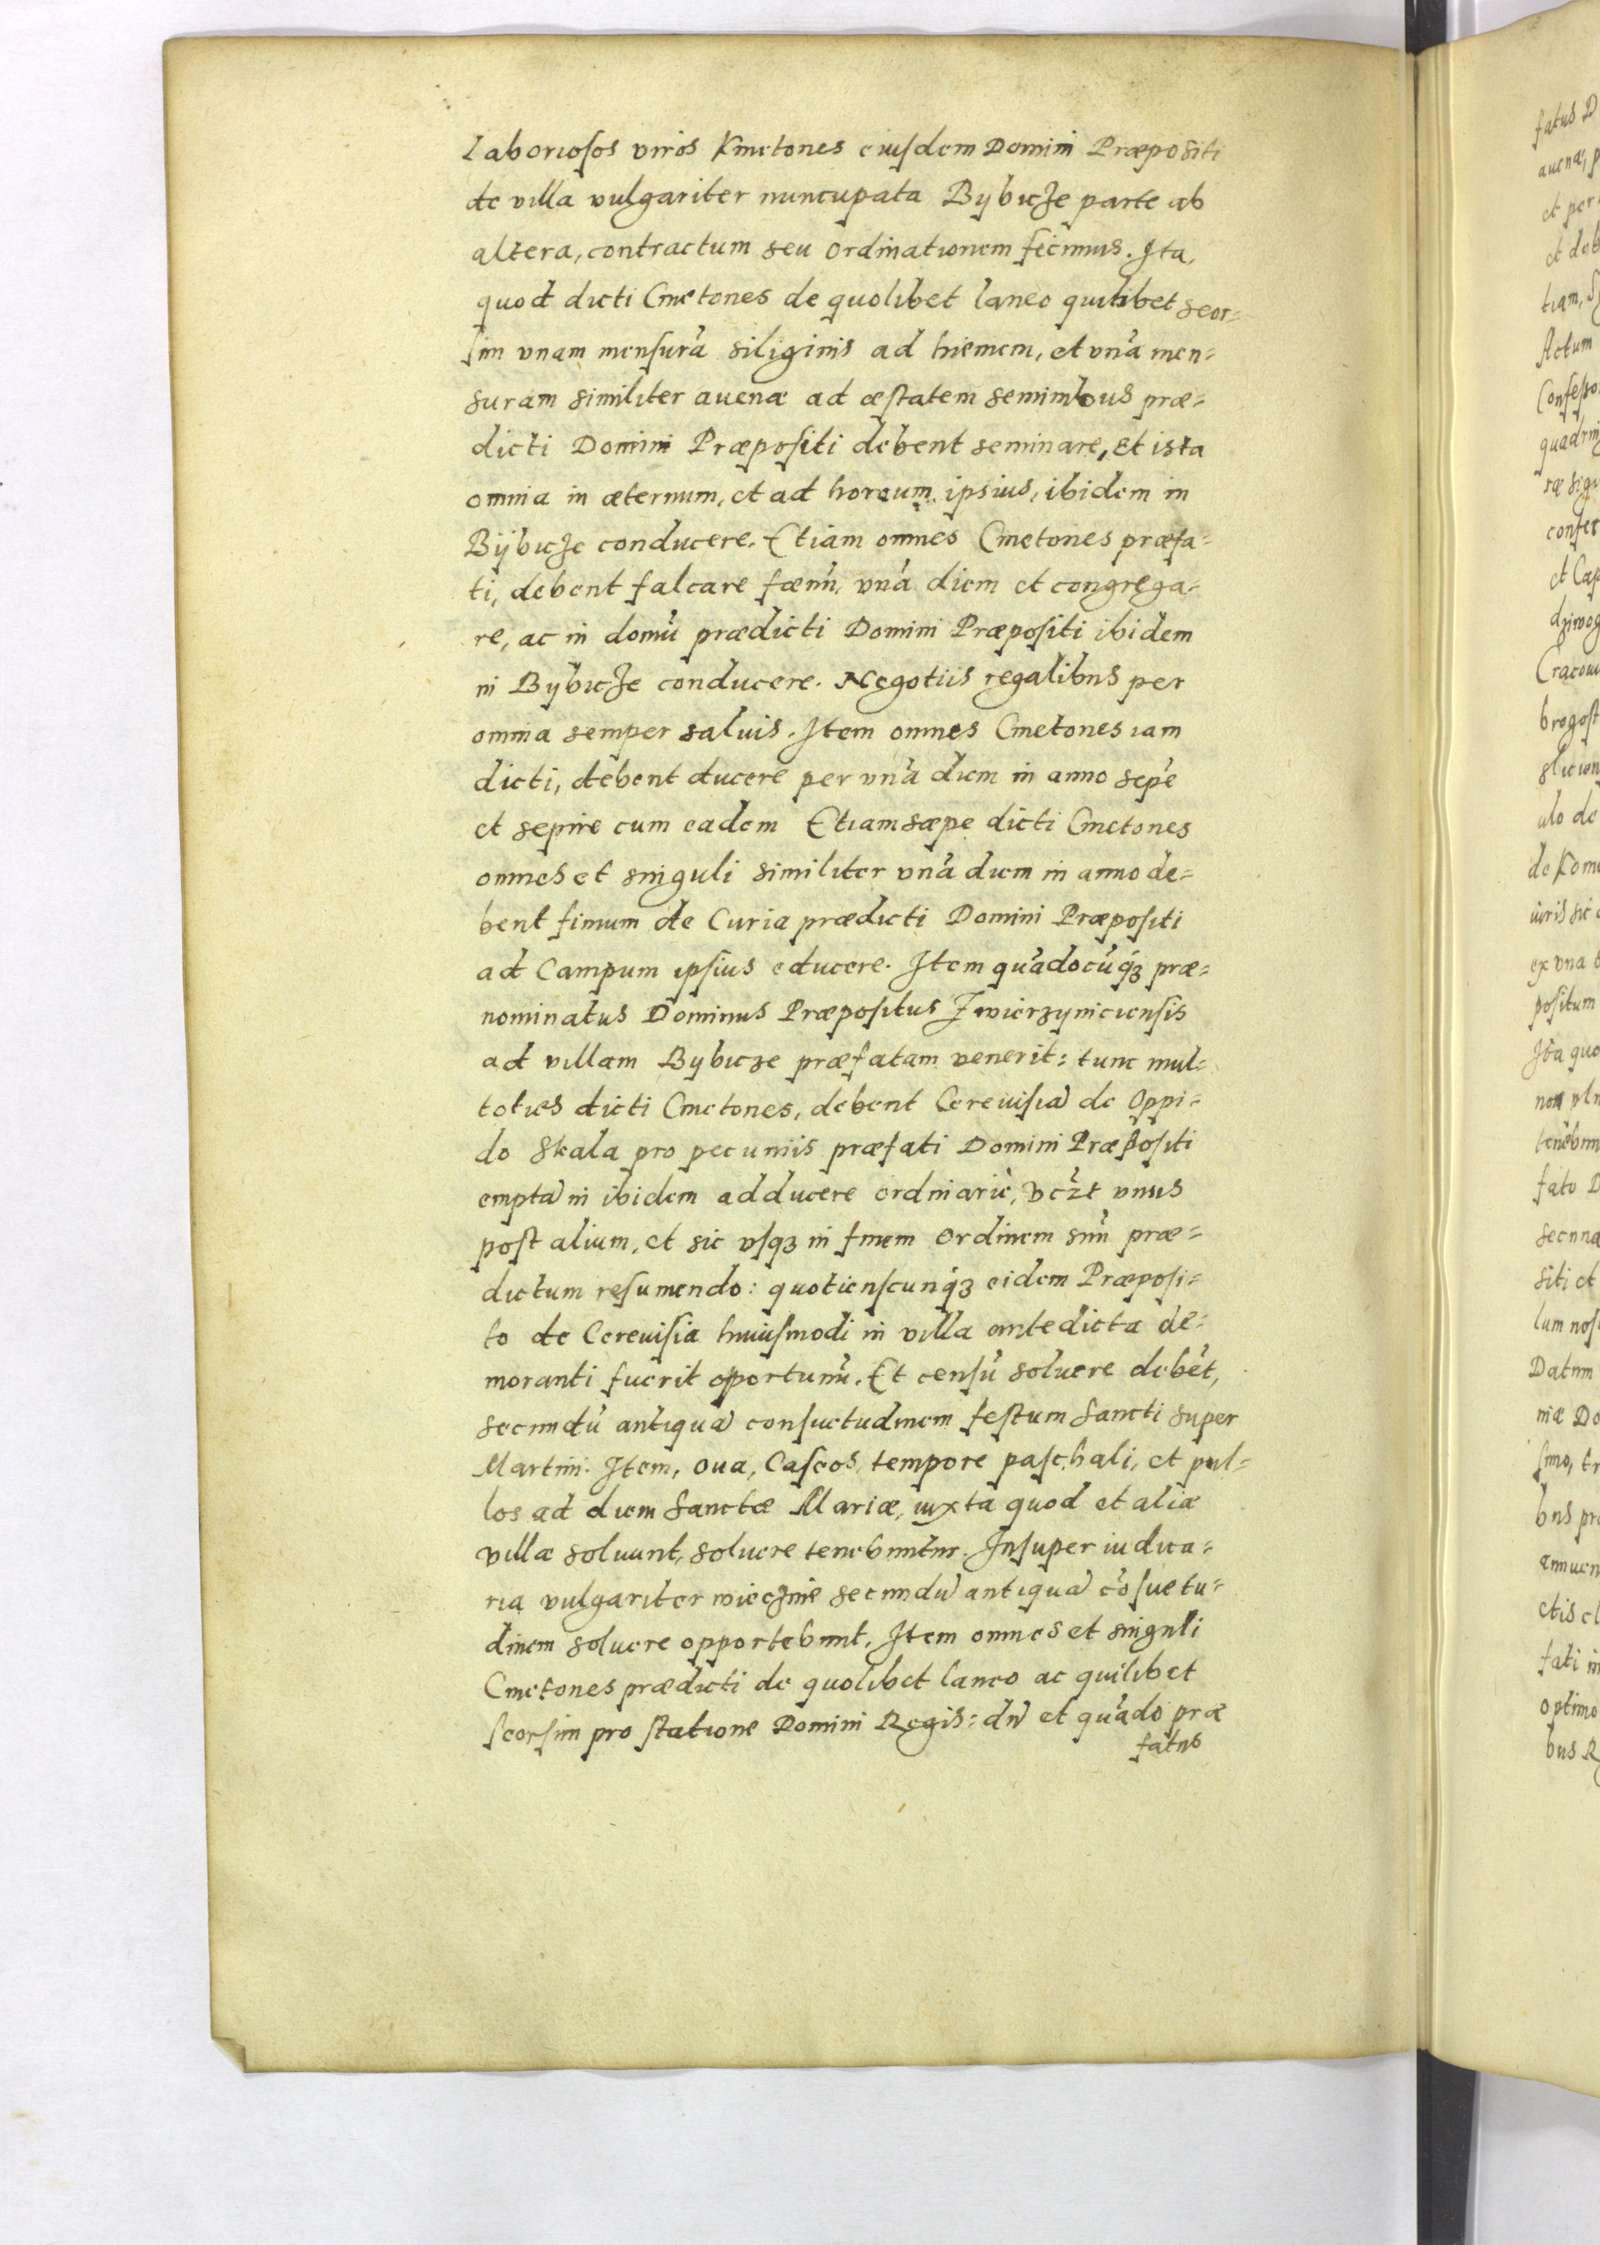 Laboriosos viros Kmetones eiusdem Domini Præpositi
de villa vulgariter nuncupata Bybicze parte ab
altera, contractum seu ordinationem fecimus. Ita,
quod dicti Cmetones de quolibet laneo quilibet seor=
sim vnam mensurã siliginis ad hiemem, et vnã men=
suram similiter auenæ ad æstatem seminibus præ=
dicti Domini Præpositi debent seminare, Et ista
omnia in æternum, et ad horeum ipsius, ibidem in
Bÿbicze conducere. Etiam omnes Cmetones præfa=
ti, debent falcare fœnũ, vnã diem et congrega=
re, ac in domũ prædicti Domini Præpositi ibidem
in Bybicze conducere. Negotiis regalibus per
omnia semper saluis. Item omnes Cmetones iam
dicti, debent ducere per vnã diem in anno sepẽ
et sepire cum eadem Etiam sæpe dicti Cmetones
omnes et singuli similiter vnã diem in anno de=
bent fimum de Curia prædicti Domini Præpositi
ad Campum ipsius educere. Item quãdocũqȝ præ=
nominatus Dominus Præpositus Zwierzyniciensis
ad villam Bybicze præfatam venerit: tunc mul=
toties dicti Cmetones, debent Cereuisiã de Oppi=
do Skala pro pecuniis præfati Domini Præpositi
emptã in ibidem adducere ordinariè, vczt vnus
post alium, et sic vsqȝ in finem ordinem suũ præ=
dictum resumendo: quotienscunqȝ eidem Præposi=
to de Cereuisia huiusmodi in villa antedicta de=
moranti fuerit oportunũ. Et censũ soluere debẽt,
secundũ antiquã consuetudinem festum Sancti super
Martini. Item, oua, Caseos, tempore paschali, et pul=
los ad diem Sanctæ Mariæ, iuxta quod et aliæ
villæ soluunt, soluere tenebuntur. Insuper iudica=
ria vulgariter wieczne secundũ antiquã cõsuetu=
dinem soluere opportebunt. Item omnes et singuli
Cmetones prædicti de quolibet laneo ac quilibet
seorsim pro statione Domini Regis: dũ et quãdo præ
fatus